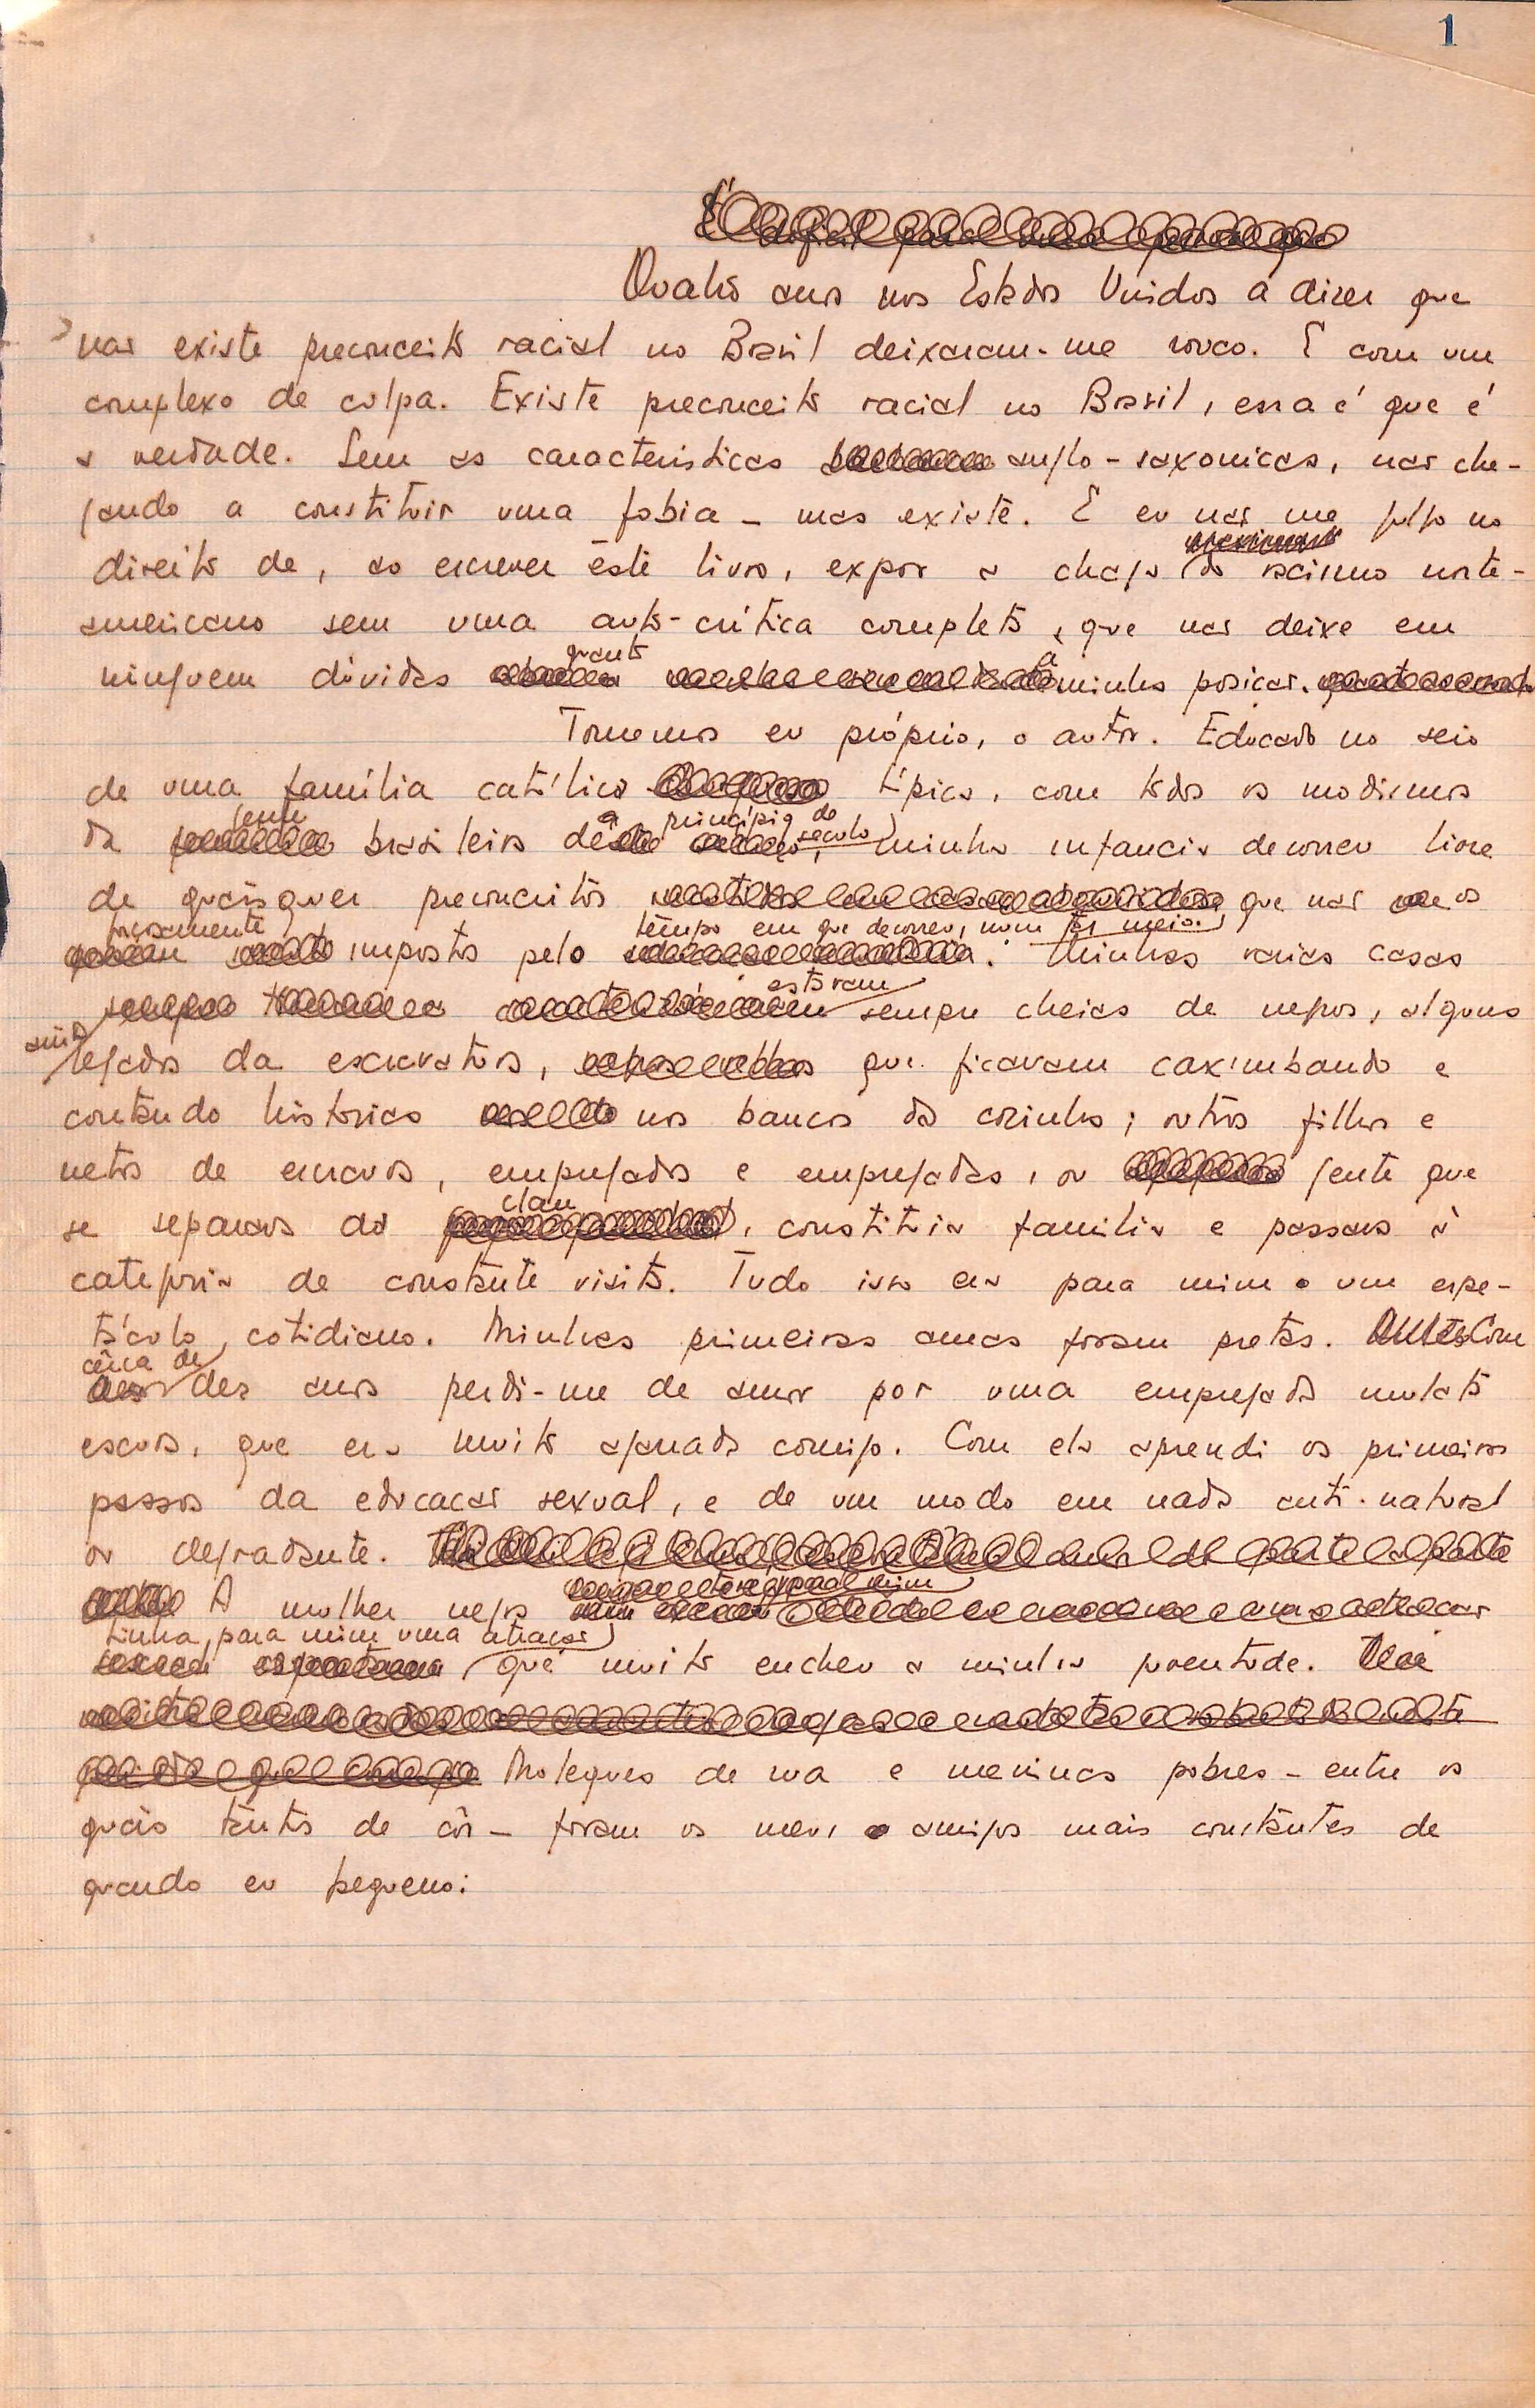 1
É difícil para uma pessoa que
Quatro anos nos Estados Unidos a dizer que
não existe preconceito racial no Brasil deixaram-me rouco. E com um
complexo de culpa. Existe preconceito racial no Brasil, essa é que é
a verdade. Sem as caracteristicas anglo-saxonicas, não che-
gando a constituir uma fobia - mas existe. E eu não me julgo no
direito de, ao escrever êste livro, expor a chaga do racismo norte-
americano sem uma auto-crítica completa, que não deixe em
quanto à
ninguem dúvidas minha posição.
Tomemos eu próprio, o autor. Educado no seio
de uma família católica típica, com todos os modismos
gente a principio do século
da brasileira dê minha infancia decorreu livre
de quaisquer preconceitos que não os
forçosamente tempo em que decorreu, num tal meio.
impostos pelo Minhas varias casas
estavam
sempre cheias de negros, alguns
ainda legados da escravatura, que ficavam caximbando e
contando historias nos bancos da cozinha; outros filhos e
netos de escravos, empregados e empregadas, ou gente que
clan
se separava do , constituia familia e passava à
categoria de constante visita. Tudo isso era para mim um espe-
táculo cotidiano. Minhas primeiras amas foram pretas. Com
cêrca de
dez anos perdi-me de amor por uma empregada mulata
escura, que era muito agarrada comigo. Com ela aprendi os primeiros
passos da educação sexual, e de um modo em nada anti-natural
ou degradante.
A mulher negra
tinha para mim uma atração
que muito encheu a minha juventude.
Moleques de rua e meninos pobres - entre os
quais tantos de côr - foram os meus amigos mais constantes de
quando eu pequeno: